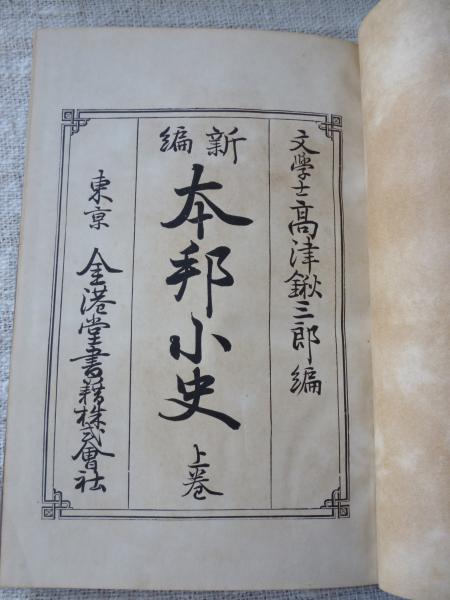 文學士高津鍬三郎編
新編
本邦小史
上巻
東京 金港堂書籍株式會社